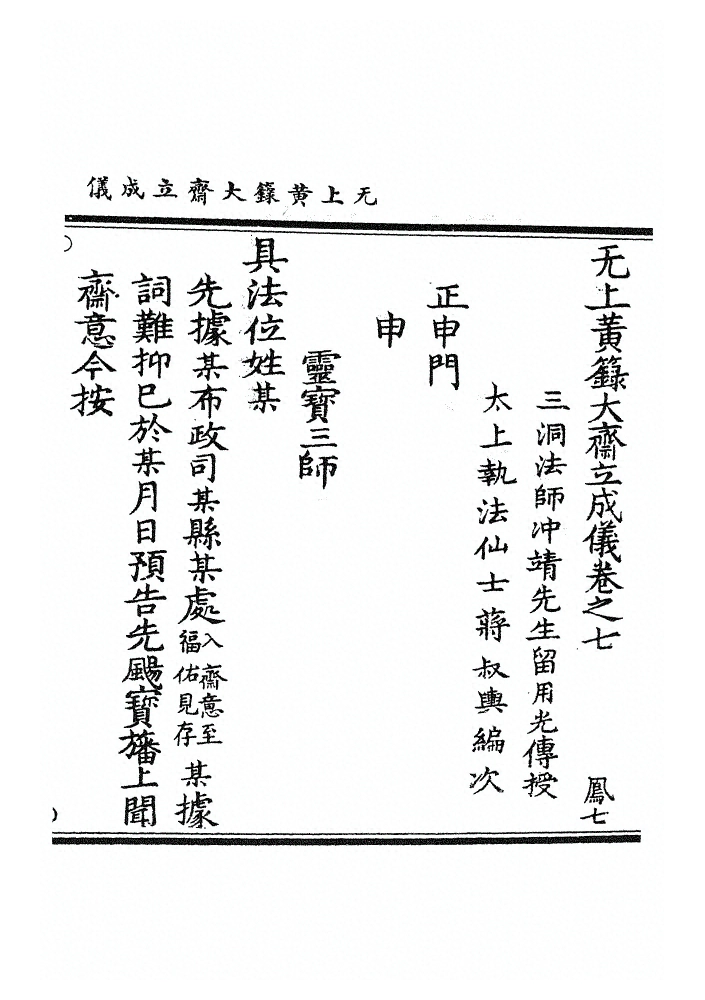 无上黄籙大齋立成儀
无上黃籙大齋立成儀卷之七 鳳七
三洞法師冲靖先生留用光傳授
太上執法仙士蔣叔輿編次
正申門
申
靈寶三師
具法位姓某
先據某布政司某縣某處入齋意至福佑見存某據
詞難抑巳於某月日預告先颺寶旛上聞
齋意今按